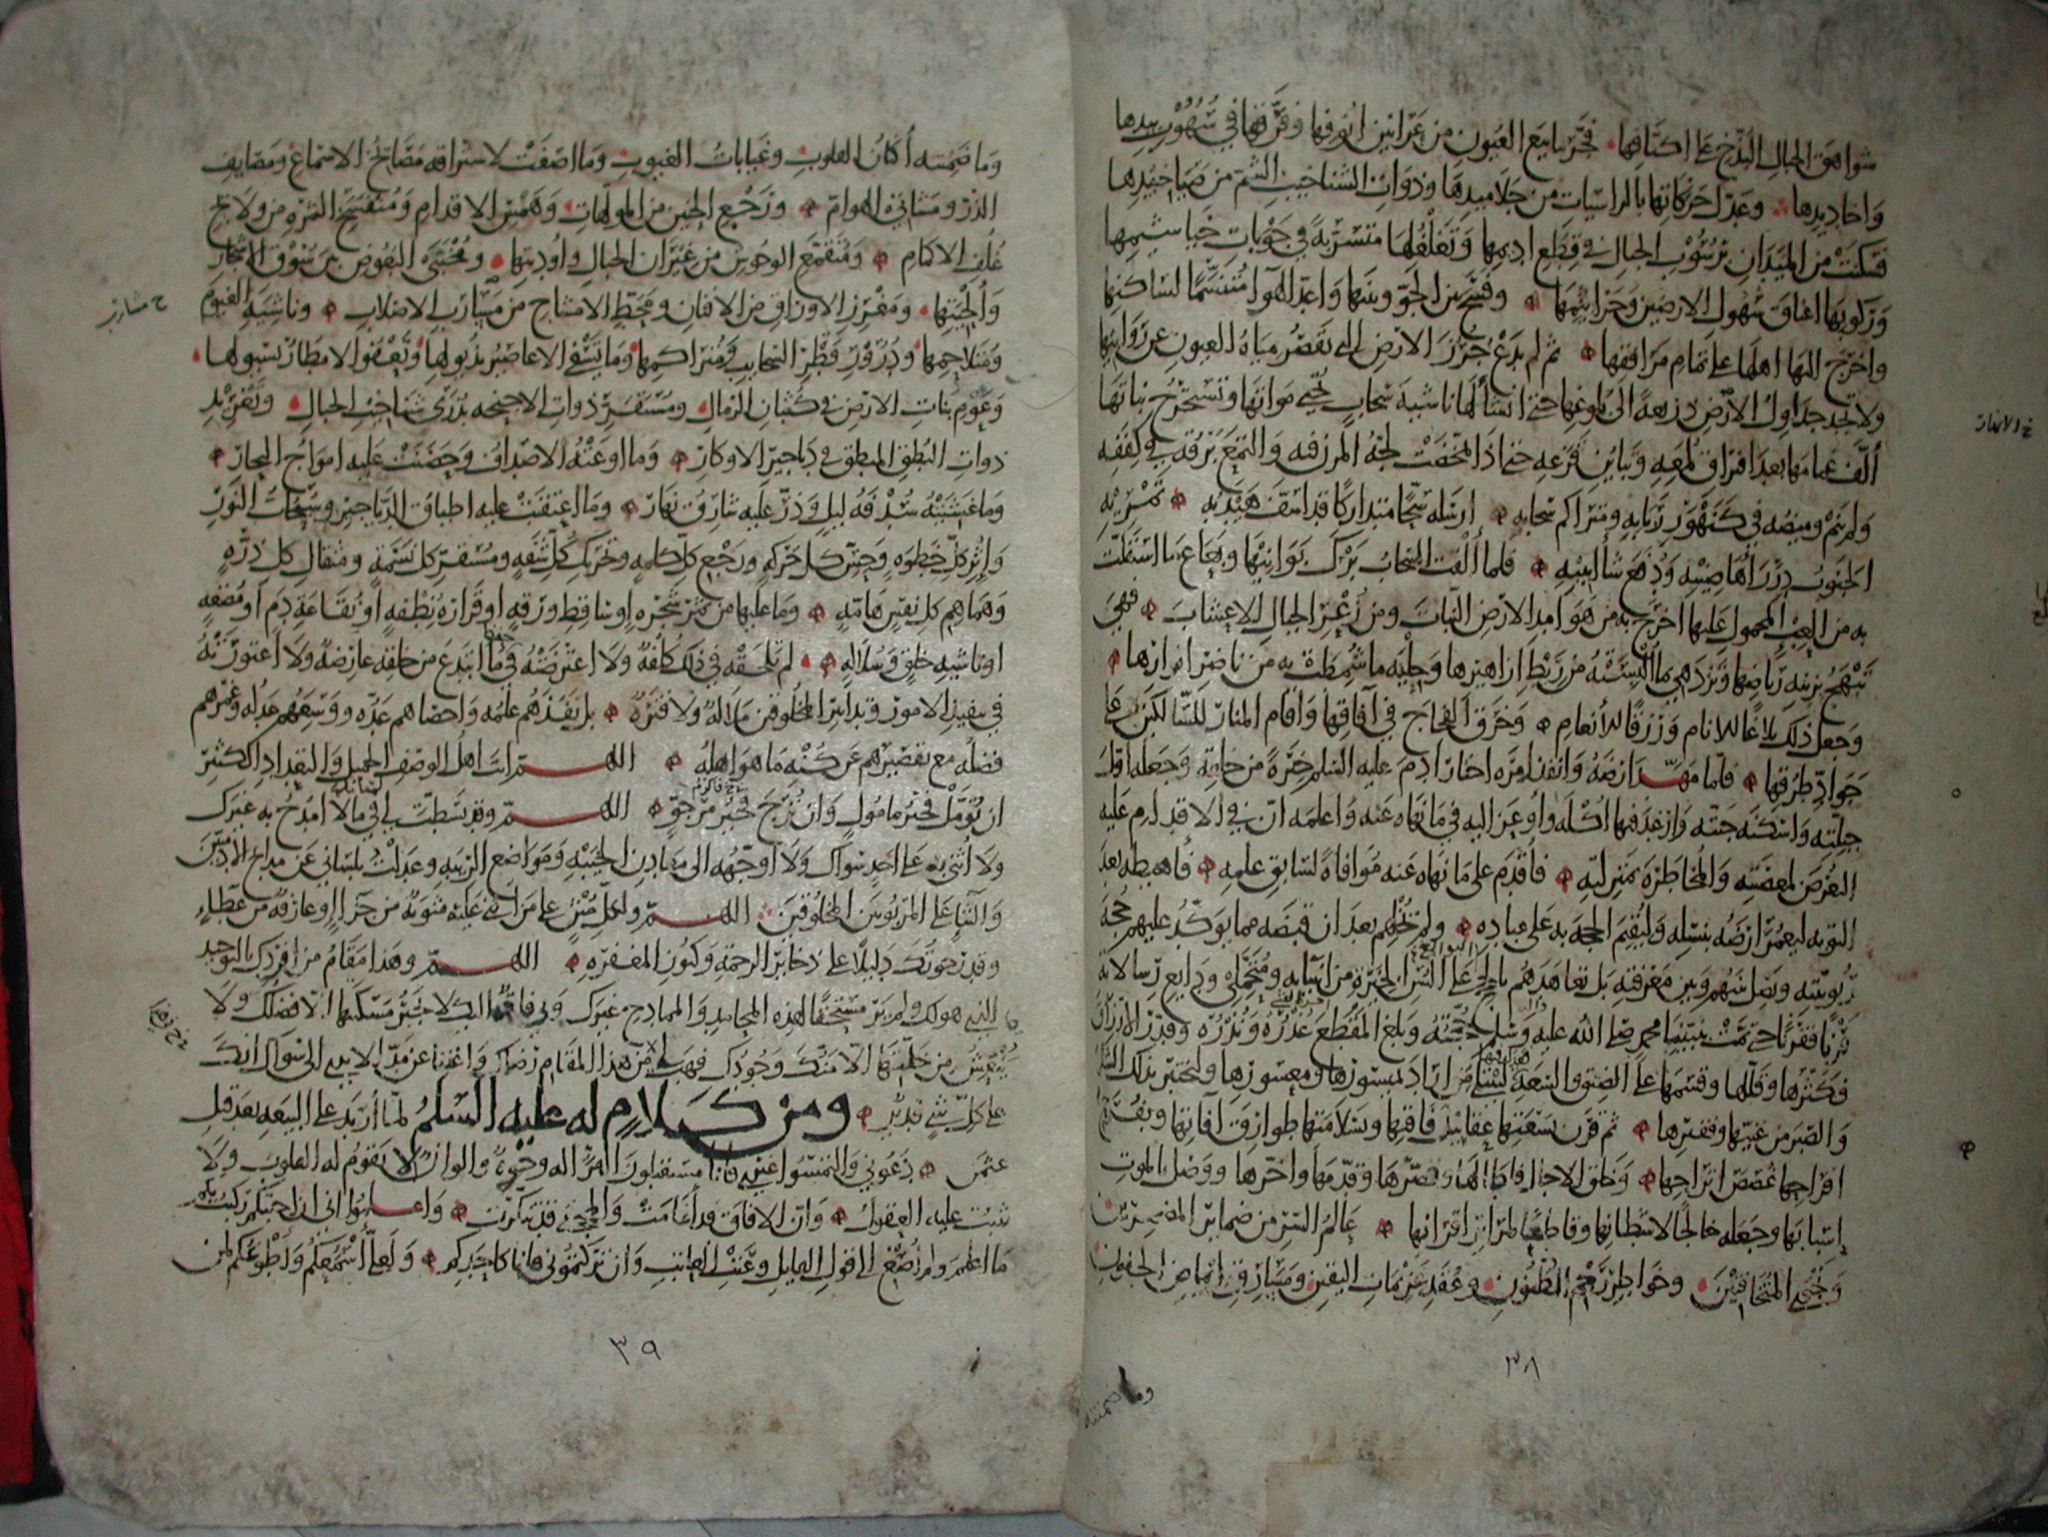 شواهق الجبال البذخ على اكتافها فجر ينابيع العيون من عرانين انوفها وفرقها في سهوب بيدها
واخاديدها وعدل حركاتها بالراسيات من جلاميدها وذوات الشناخيب الشم من صياخيدها
فسكنت من الميدان برسوب الجبال في قطع اديمها وتغلغلها متسربة في جوبات خياشيمها
وركوبها اعناق سهول الارضين وجراثيمها وفسح بين الجو وبينها واعد الهوا متنسما لساكنها
واخرج اليها اهلها على تمام مرافقها ثم لم يدع جرز الارض التي تقصر مياه العيون عن روابيها
ولا تجد جداول الارض ذريعة الى بلوغها حتى انشا لها ناشية سحاب تحيي مواتها وتستخرج نباتها
الف غمامها بعد افتراق لمعه وتباين قزعه حتى اذا تمخضت لجة المزن فيه والتمع برقه في كففه
ولم ينم وميضه في كنهور ربابه ومتراكم سحابه ارسله سحا متداركا قد اسف هيدبه تمريه
الجنوب درر اهاضيبه ودفع شآبيبه فلما القت السحاب برك بوانيها وبعاع ما استقلت
به من العبء المحمول عليها اخرج به من هوامد الارض النبات ومن زعر الجبال الاعشاب فهي
تبهج بزينة رياضها وتزدهي بما البسته من ريط ازاهيرها وحلية ما سمطت به من ناضر انوارها
وجعل ذلك بلاغا للانام ورزقا للانعام وخرق الفجاج في آفاقها واقام المنار للسالكين على
جواد طرقها فلما مهد ارضه وانفذ امره اختار ادم عليه السلم خيرة من خلقه وجعله اول
جبلته واسكنه جنته وارغد فيها اكله واوعز اليه في ما نهاه عنه واعلمه ان في الاقدام عليه
التعرض لمعصيته والمخاطرة بمنزلته فاقدم على ما نهاه عنه موافاة لسابق علمه فاهبطه بعد
التوبة ليعمر ارضه بنسله وليقيم الحجة به على عباده ولم يخلهم بعد ان قبضه مما يوكد عليهم حجة
ربوبيته ويصل بينهم وبين معرفته بل تعاهدهم بالحجج على السن الخيرة من انبيايه ومتحملي ودايع رسالاته
قرنا فقرنا حتى تمت بنبينا محمد صلى الله عليه وسلم حجته وبلغ المقطع عذره ونذره وقدر الارزاق
فكثرها وقللها وقسمها على الضيق والسعة ليبتلي من اراد بميسورها ومعسورها وليختبر بذلك الشكر
والصبر من غنيها وفقيرها ثم قرن بسعتها عقابيل فاقتها وبسلامتها طوارق آفاتها وبفرج
افراحها غصص اتراحها وخلق الاجال فاطالها وقصرها وقدمها واخرها ووصل بالموت
اسبابها وجعله خالجا لاشطانها وقاطعا لمراير اقرانها عالم السر من ضماير المضمرين
ونجوى المتخافتين وخواطر رجم الظنون وعقد عزيمات اليقين ومسارق ايماض الجفون
٣٨
وما ضمنته
وما ضمنته أكنان القلوب وغيابات الغيوب وما اصغت لاستراقه مصائخ الاسماع ومصايف
الذر ومشاتي الهوام ورجع الحنين من المولهات وهمس الاقدام ومنفسح الثمرة من ولايج
غلف الاكمام ومنقمع الوحوش من غيران الجبال واوديتها ومختبى البعوض بين سوق الاشجار
والحيتها ومغرز الاوراق من الافنان ومحط الامشاج من مسارب الاصلاب وناشية الغيوم
ومتلاحمها ودرور قطر السحاب في متراكمها وما تسفي الاعاصير بذيولها وتعفو الامطار بسيولها
وعوم بنات الارض في كثبان الرمال ومستقر ذوات الاجنحة بذرى شناخيب الجبال وتغريد
ذوات النطق المنطق في دياجير الاوكار وما اوعته الاصداف وحضنت عليه امواج البحار
وما غشيته سدفة ليل وذر عليه شارق نهار وما اعتقبت عليه اطباق الدياجير وسبحات النور
واثر كل خطوة وحس كل حركة ورجع كل كلمة وتحريك كل شفة ومستقر كل نسمة ومثقال كل ذرة
وهماهم كل نفس هامة وما عليها من ثمر شجرة او ساقط ورقة او قرارة نطفة او نقاعة دم او مضغة
او ناشية خلق وسلالة لم تلحقه في ذلك كلفة ولا اعترضته في حفظ ما ابتدع من خلقه عارضة ولا اعتورته
في تنفيذ الامور وتدابير المخلوقين ملالة ولا فترة بل نفذهم علمه واحصاهم عده ووسعهم عدله وغمرهم
فضله مع تقصيرهم عن كنه ما هو اهله اللهم انت اهل الوصف الجميل والتعداد الكثير
ان تؤمل فخير مامول وان ترج فخير مرجو اللهم وقد بسطت لي في ما لا امدح به غيرك
ولا اثني به على احد سواك ولا اوجهه الى معادن الخيبة ومواضع الريبة وعدلت بلساني عن مدايح الادميين
والثنا على المربوبين المخلوقين اللهم ولكل مثن على من اثنى عليه مثوبة من جزاء او عارفة من عطاء
وقد رجوتك دليلا على ذخاير الرحمة وكنوز المغفرة اللهم وهذا مقام من افردك بالتوحيد
الذي هو لك ولم ير مستحقا لهذه المحامد والممادح غيرك وبي فاقة اليك لا يجبر مسكنتها الا فضلك ولا
ينعش من خلتها الا منك وجودك فهب لي في هذا المقام رضاك واغننا عن مد الايدي الى سواك انك
على كل شي قدير ومن كلام له عليه السلم لما اريد على البيعة بعد قتل
عثمن دعوني والتمسوا غيري فانا مستقبلون امرا له وجوه والوان لا تقوم له القلوب ولا
تثبت عليه العقول وان الافاق قد اغامت والمحجة قد تنكرت واعلموا اني ان اجبتكم ركبت بكم
ما اعلم ولم اصغ الى قول القايل وعتب العاتب وان تركتموني فانا كاحدكم ولعلي اسمعكم واطوعكم لمن
٣٩